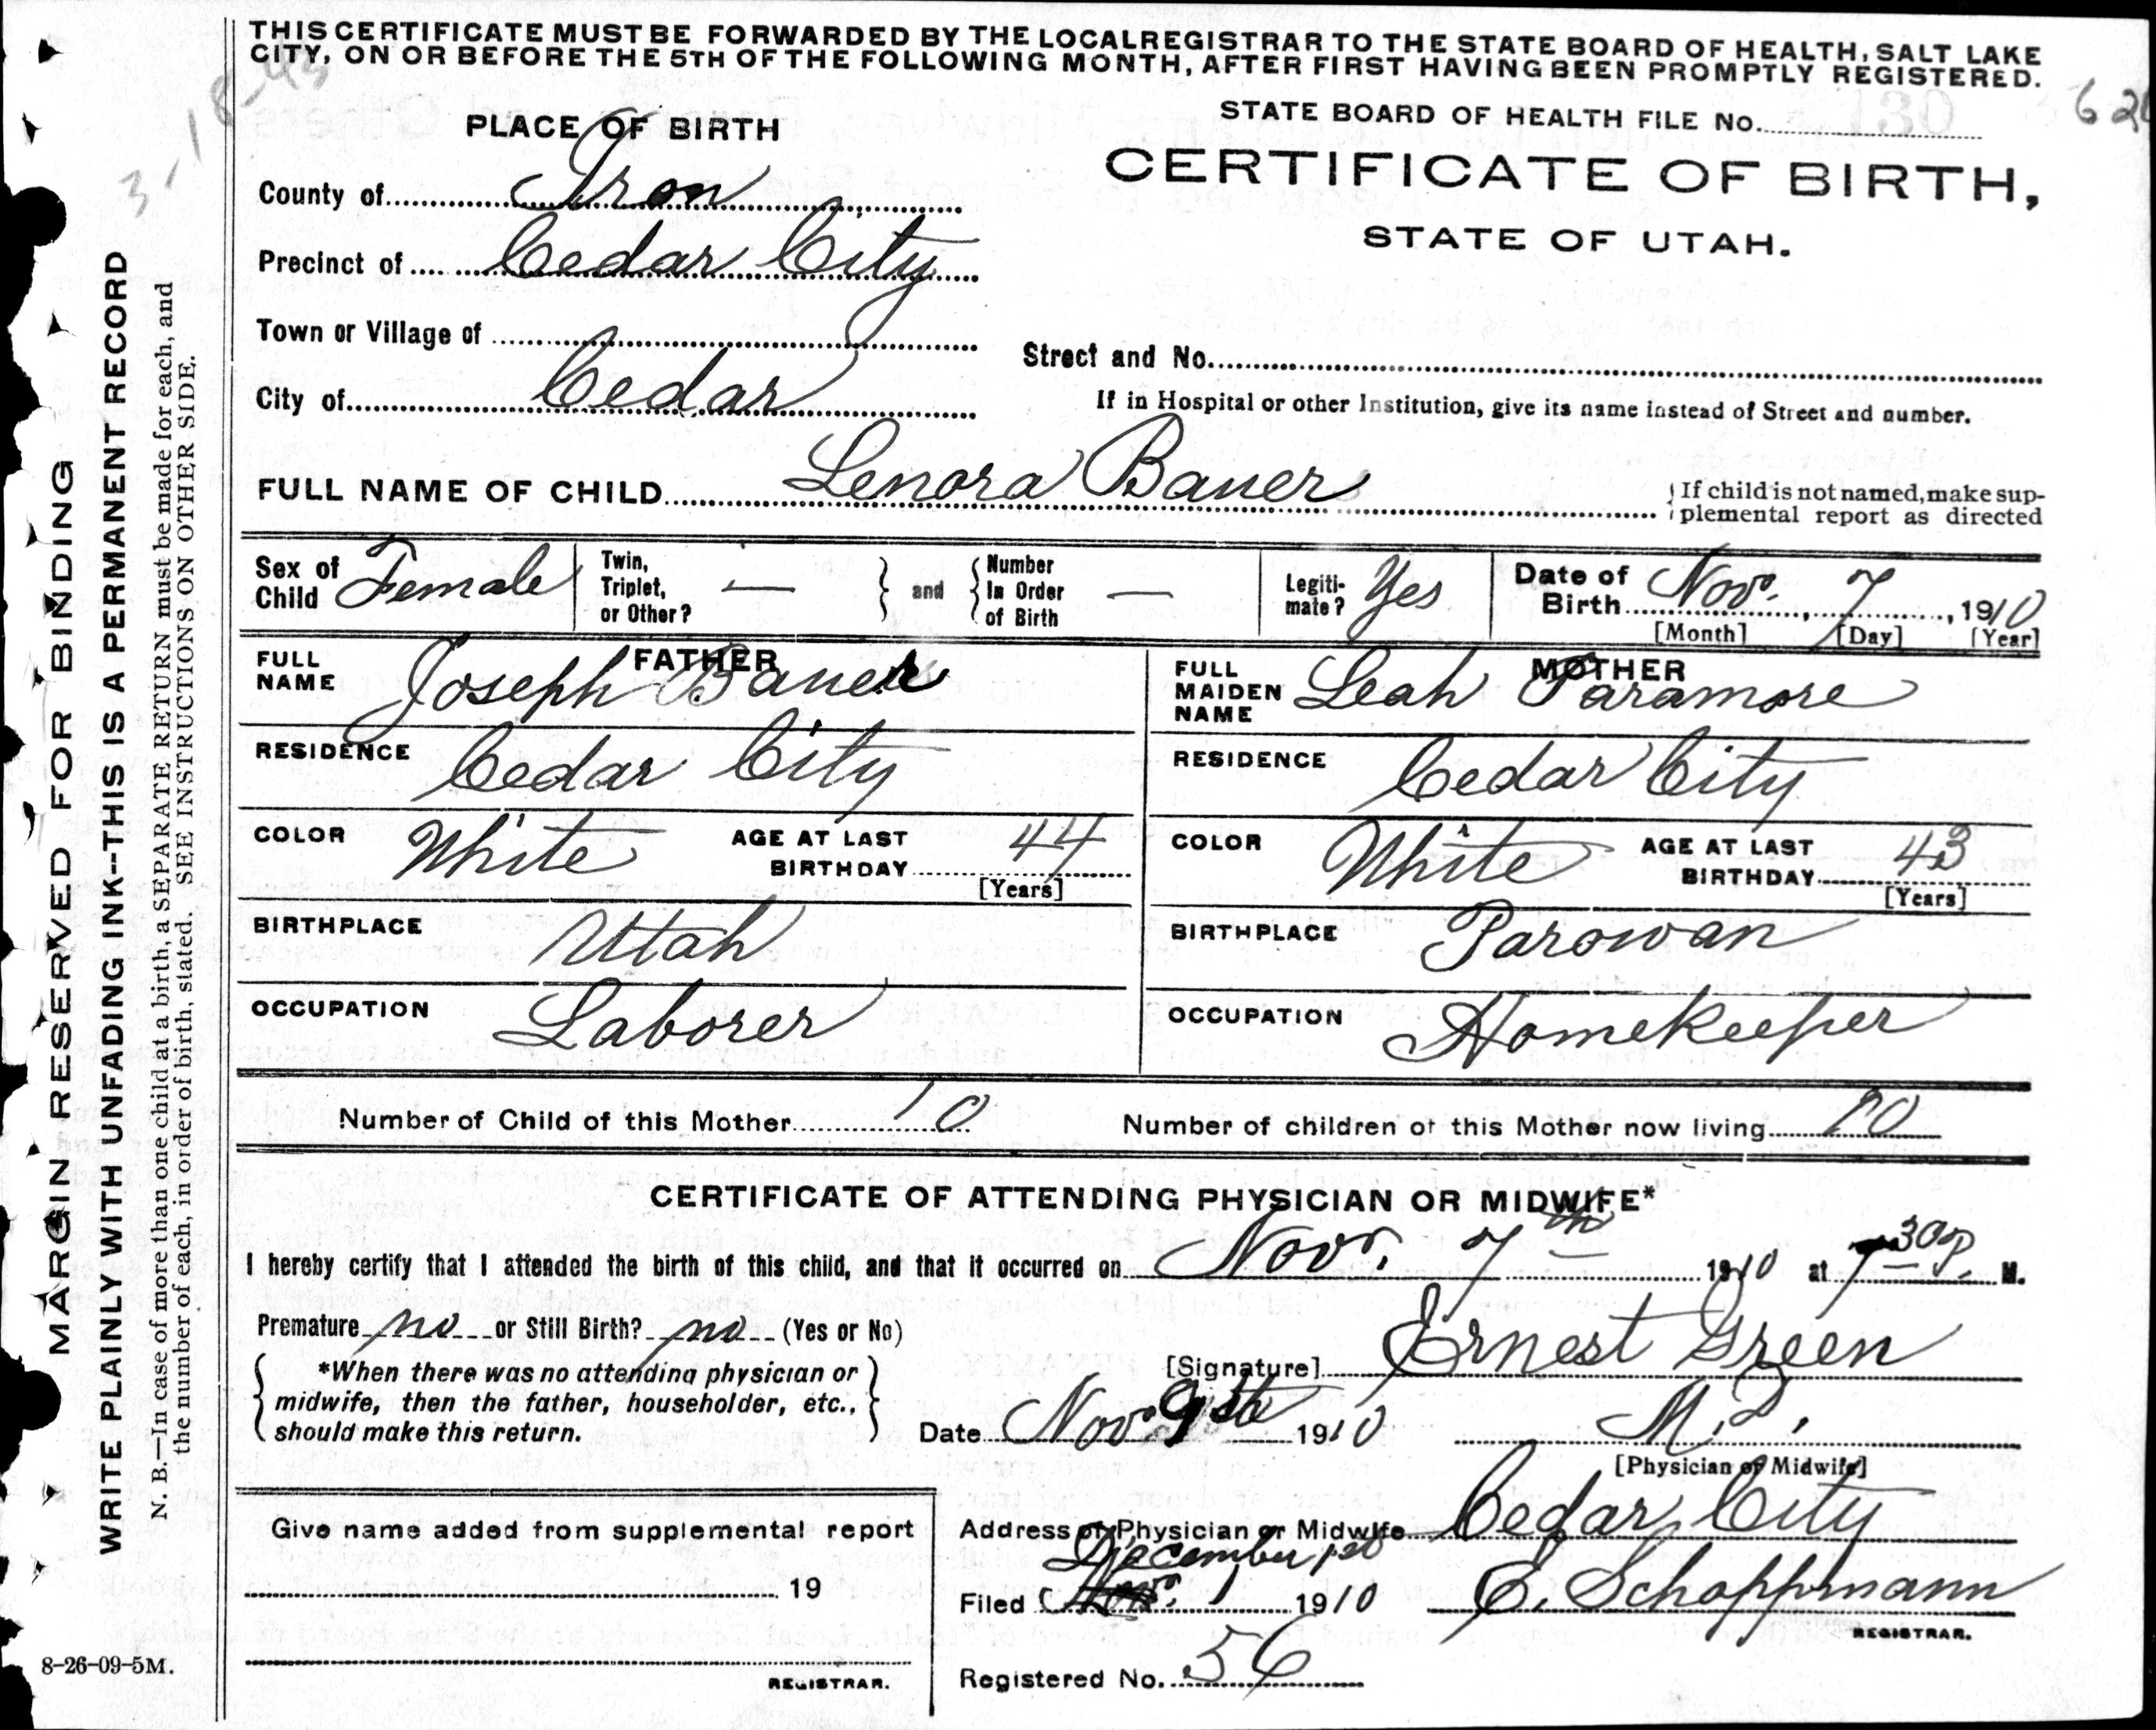 THIS CERTIFICATE MUST BE FORWARDED BY THE LOCAL REGISTRAR TO THE STATE BOARD OF HEALTH, SALT LAKE
CITY, ON OR BEFORE THE 5TH OF THE FOLLOWING MONTH, AFTER FIRST HAVING BEEN PROMPTLY REGISTERED.
3-18-43
STATE BOARD OF HEALTH FILE No. 130
62
PLACE OF BIRTH
CERTIFICATE OF BIRTH,
STATE OF UTAH.
County of Iron
Precinct of Cedar City
Town or Village of
City of Cedar
Street and No.
If in Hospital or other Institution, give its name instead of Street and number.
FULL NAME OF CHILD Lenora Bauer
{If child is not named, make sup-
plemental report as directed
Sex of Child Female
Twin, Triplet, or Other? —
} and {
Number In Order of Birth —
Legiti-mate? Yes
Date of Birth Nov. 7, 1910
[Month] [Day] [Year]
FATHER
FULL NAME Joseph Bauer
RESIDENCE Cedar City
COLOR White AGE AT LAST BIRTHDAY 44
[Years]
BIRTHPLACE Utah
OCCUPATION Laborer
MOTHER
FULL MAIDEN NAME Leah Paramore
RESIDENCE Cedar City
COLOR White AGE AT LAST BIRTHDAY 43
[Years]
BIRTHPLACE Parowan
OCCUPATION Homekeeper
Number of Child of this Mother 10 Number of children of this Mother now living 10
CERTIFICATE OF ATTENDING PHYSICIAN OR MIDWIFE*
I hereby certify that I attended the birth of this child, and that it occurred on Nov. 7th 1910 at 7 30 P. M.
Premature no or Still Birth? no (Yes or No)
{ *When there was no attending physician or
midwife, then the father, householder, etc.,
should make this return. }
[Signature] Ernest Green
Date Nov. 9th 1910 M.D.
[Physician or Midwife]
Address of Physician or Midwife Cedar City
December 1st
Filed Nov. 1 1910 E. Schoppmann
REGISTRAR.
Registered No. 56
Give name added from supplemental report
19
REGISTRAR.
8-26-09-5M.
MARGIN RESERVED FOR BINDING
WRITE PLAINLY WITH UNFADING INK--THIS IS A PERMANENT RECORD
N. B.—In case of more than one child at a birth, a SEPARATE RETURN must be made for each, and
the number of each, in order of birth, stated. SEE INSTRUCTIONS ON OTHER SIDE.